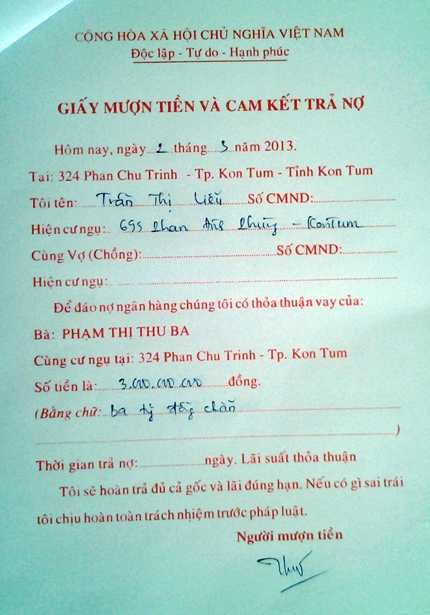 CỘNG HÒA XÃ HỘI CHỦ NGHĨA VIỆT NAM
Độc lập - Tự do - Hạnh phúc
GIẤY MƯỢN TIỀN VÀ CAM KẾT TRẢ NỢ
Hôm nay, ngày 2 tháng 3 năm 2013.
Tại: 324 Phan Chu Trinh - Tp. Kon Tum - Tỉnh Kon Tum
Tôi tên: Trần Thị Liễu Số CMND:
Hiện cư ngụ: 695 Phan Đình Phùng - KonTum
Cùng Vợ (Chồng): Số CMND:
Hiện cư ngụ:
Để đáo nợ ngân hàng chúng tôi có thỏa thuận vay của:
Bà: PHẠM THỊ THU BA
Cùng cư ngụ tại: 324 Phan Chu Trinh - Tp. Kon Tum
Số tiền là: 3.000.000.000 đồng.
(Bằng chữ: ba tỷ đồng chẵn
)
Thời gian trả nợ: ngày. Lãi suất thỏa thuận
Tôi sẽ hoàn trả đủ cả gốc và lãi đúng hạn. Nếu có gì sai trái
tôi chịu hoàn toàn trách nhiệm trước pháp luật.
Người mượn tiền